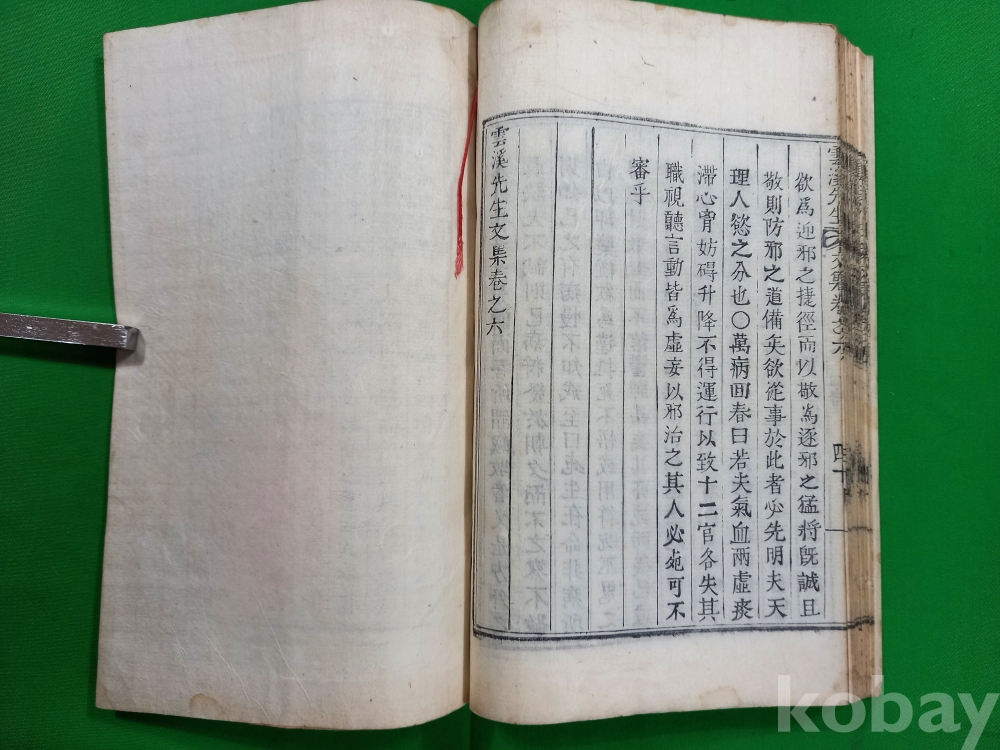 欲爲迎邪之捷徑而以敬爲逐邪之猛將旣誠且
敬則防邪之道備矣欲從事於此者必先明夫天
理人慾之分也〇萬病回春曰若夫氣血兩虛痰
滯心胷妨碍升降不得運行以致十二官各失其
職視聽言動皆爲虛妄以邪治之其人必死可不
審乎
雲溪先生文集卷之六
雲溪先生文集卷之六
四十
kobay